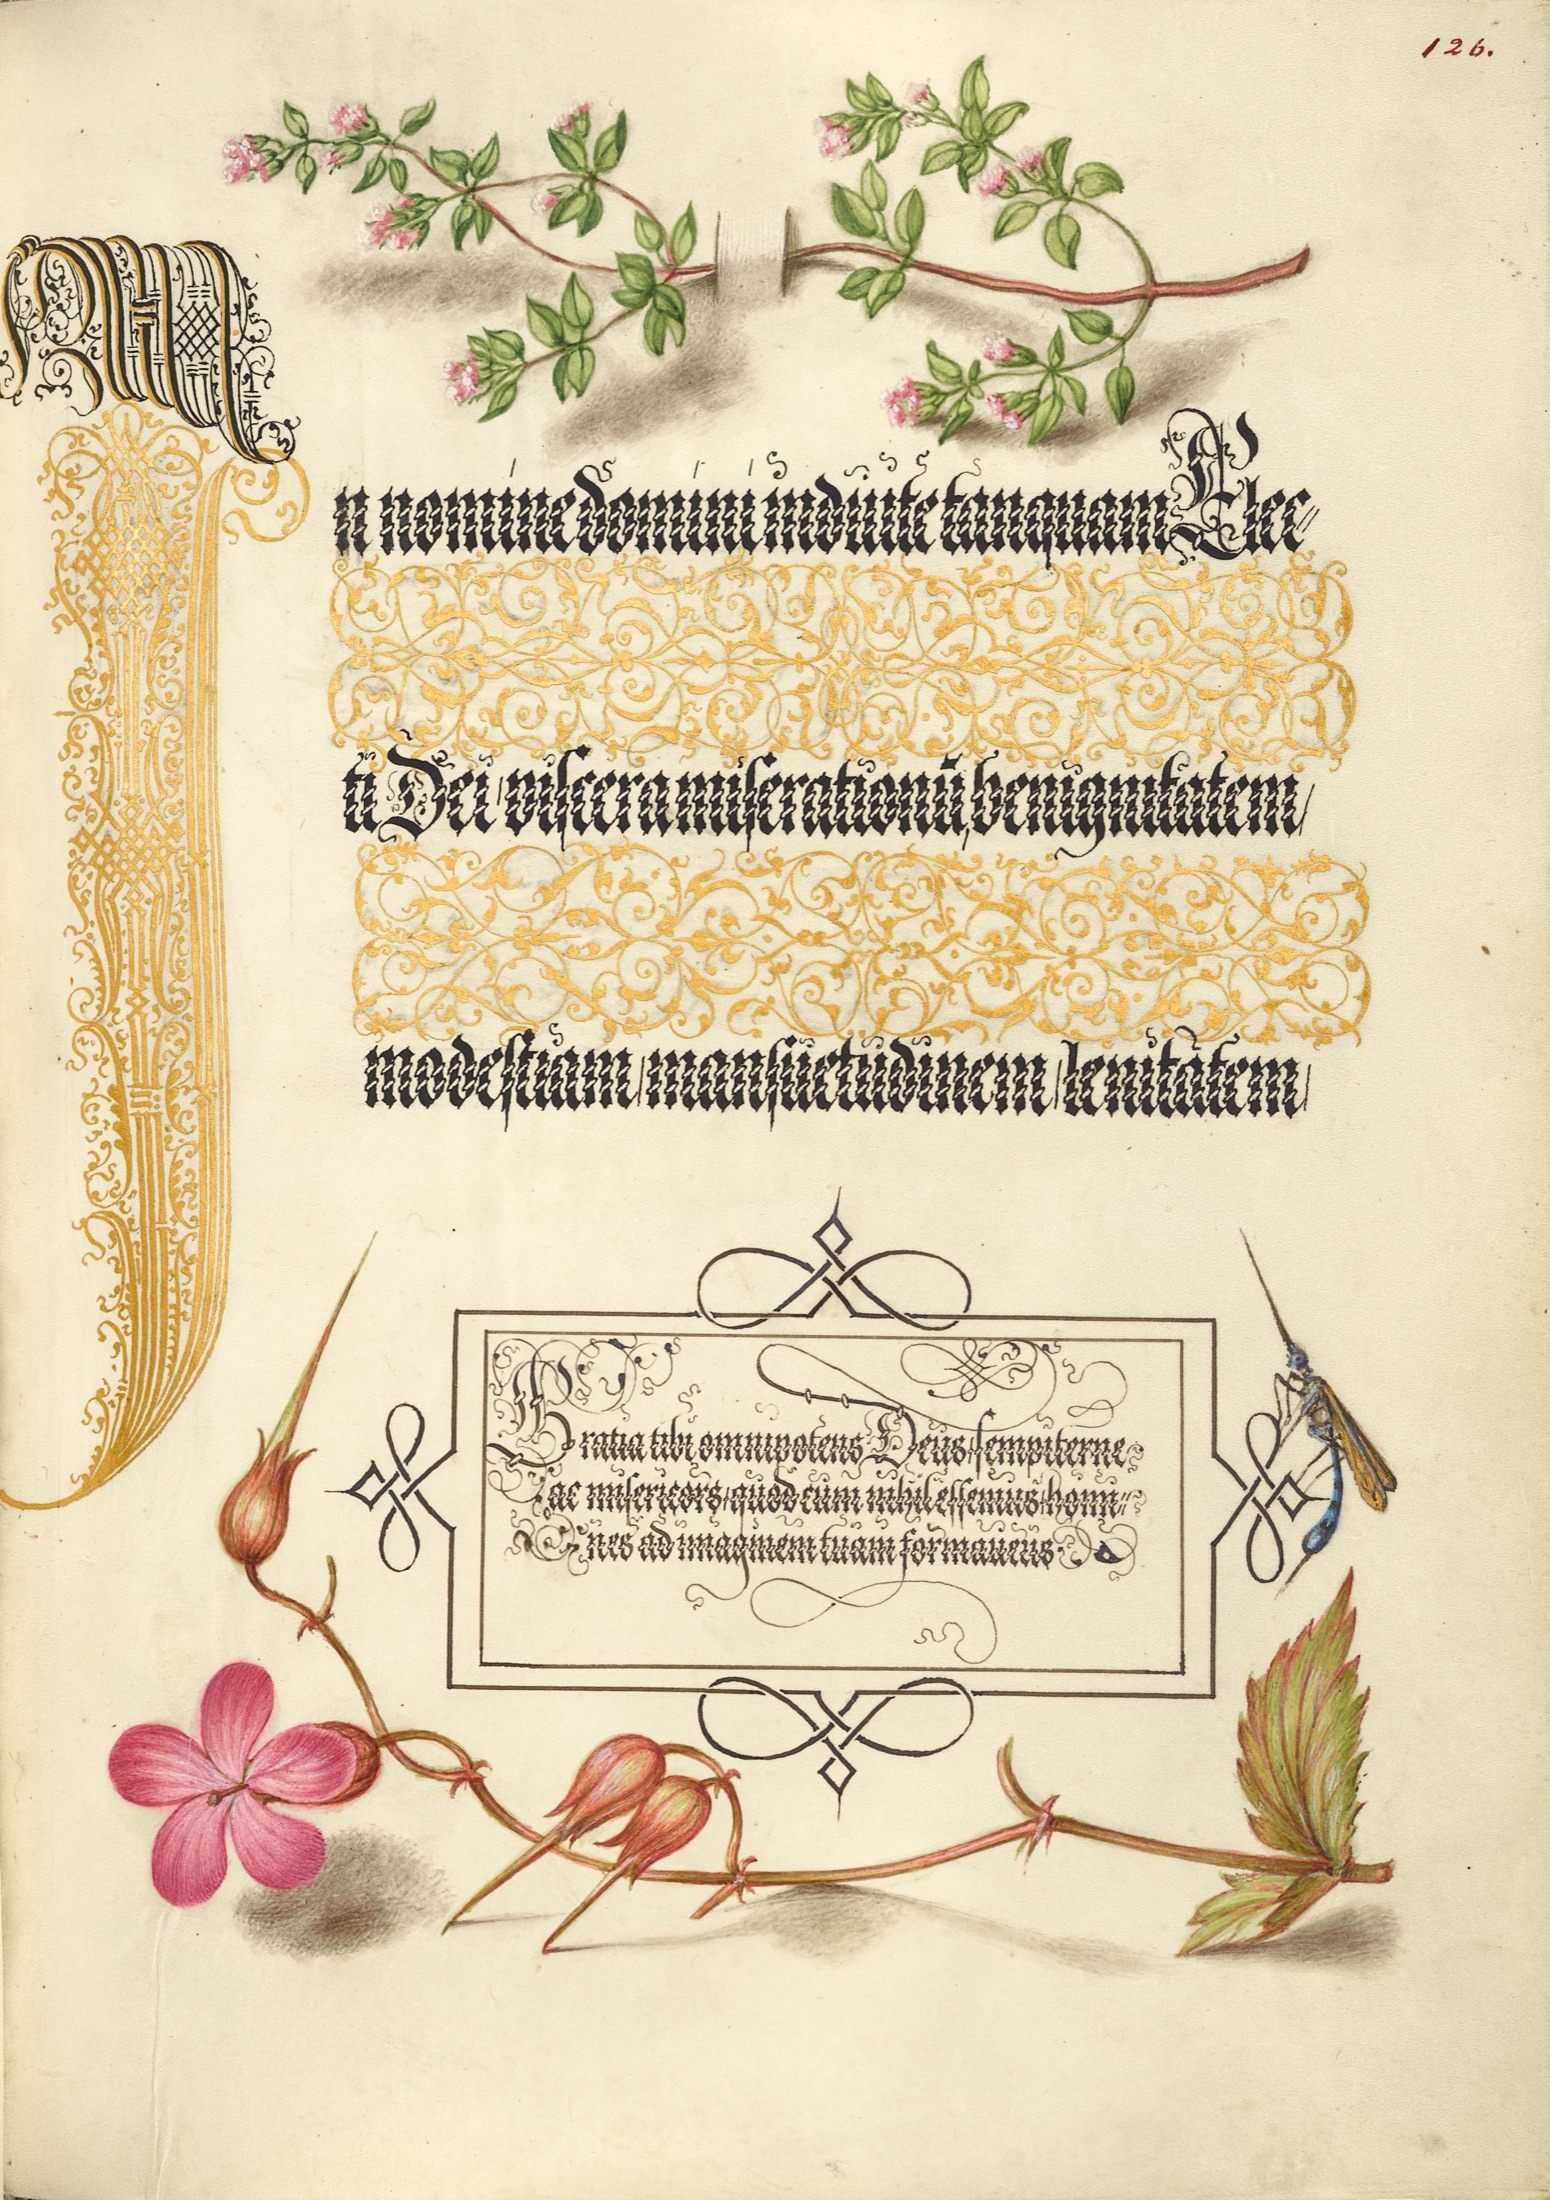 126.
In nomine domini induite tanquam Elec⸗
ti Dei, viscera miserationū, benignitatem,
modestiam, mansuetudinem, lenitatem,
Gratia tibi omnipotens Deus, sempiterne
ac misericors, quod cum nihil essemus, homi⸗
nes ad imaginem tuam formaueris